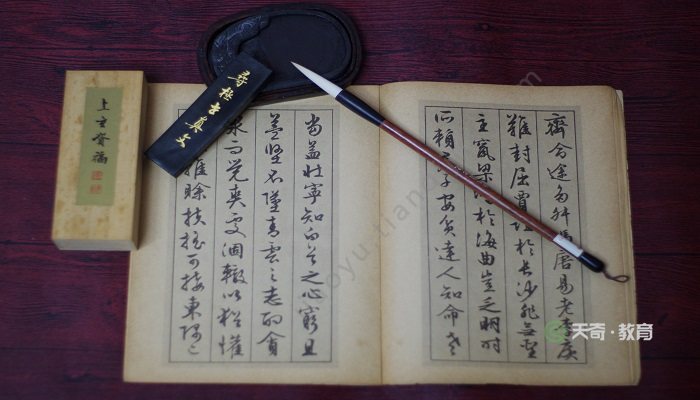 齊命途多舛馮唐易老李廣
難封屈賈誼於長沙非無聖
主竄梁鴻於海曲豈乏明時
所賴君子安貧達人知命老
當益壯寧知白首之心窮且
益堅不墜青雲之志酌貪
泉而覺爽處涸轍以猶懽
雖賒扶搖可接東隅已
尋極玄真文
上玄賚福
天奇·教育